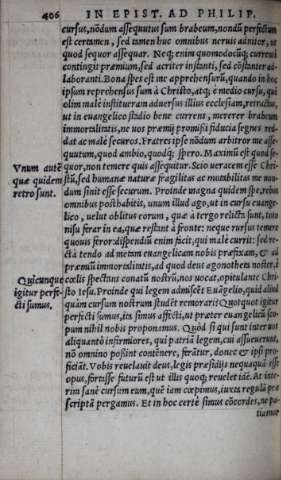 406 IN EPIST. AD PHILIP.
cursus, nõdum assequutus sum brabeum, nondũ perfectum
est certamen, sed tamen huc omnibus neruis adnitor, ut
quod sequor assequar. Neq; enim quomodocũq; currenti
contingit præmium, sed acriter instanti, sed cõstanter ad-
laboranti. Bona spes est me apprehensurũ, quando in hoc
ipsum reprehensus sum à Christo, atq; è medio cursu, qui
olim malè institueram aduersus illius ecclesiam, retractus,
ut in euangelico stadio bene currens, mererer brabeum
immortalitatis, ne uos præmij promissi fiducia segnes red-
dat ac malè securos. Fratres ipse nondum arbitror me asse-
quutum, quod ambio, quodq; spero. Maximũ est quod se-
Vnum autẽ quor, non temere quis assequitur. Scio ueracem esse Chri-
quæ quidem stũ, sed humanæ naturæ fragilitas ac mutabilitas me non-
retro sunt. dum sinit esse securum. Proinde magna quidem spe, rebus
omnibus posthabitis, unum illud ago, ut in cursu euange-
lico, uelut oblitus eorum, quæ à tergo relicta sunt, toto
nisu ferar in ea, quæ restant à fronte: neque rursus temere
quouis feror: dispendiũ enim facit, qui malè currit: sed re-
ctà tendo ad metam euangelicam nobis præfixam, & ad
præmiũ immortalitatis, ad quod deus agonothetes noster, è
Quicunque cœlis spectans conatũ nostrũ, nos uocat, opitulante Chri-
igitur perfe- sto Iesu. Proinde qui legem admiscẽt Euãgelio, quid aliud
cti sumus. quàm cursum nostrum studẽt remorari? Quotquot igitur
perfecti sumus, ita simus affecti, ut præter euangelicũ sco-
pum nihil nobis proponamus. Quòd si qui sunt inter uos
aliquanto infirmiores, qui patriã legem, cui assueuerunt,
nõ omnino possint contẽnere, ferãtur, donec & ipsi pro-
ficiãt. Vobis reuelauit deus, legis præsidijs nequaquã esse
opus, fortasse futurũ est ut illis quoq; reuelet idẽ. At inte-
rim sanè cursum eum, quẽ iam cœpimus, iuxta regulã præ
scriptã pergamus. Et in hoc certè simus cõcordes, ne pa-
tiamur